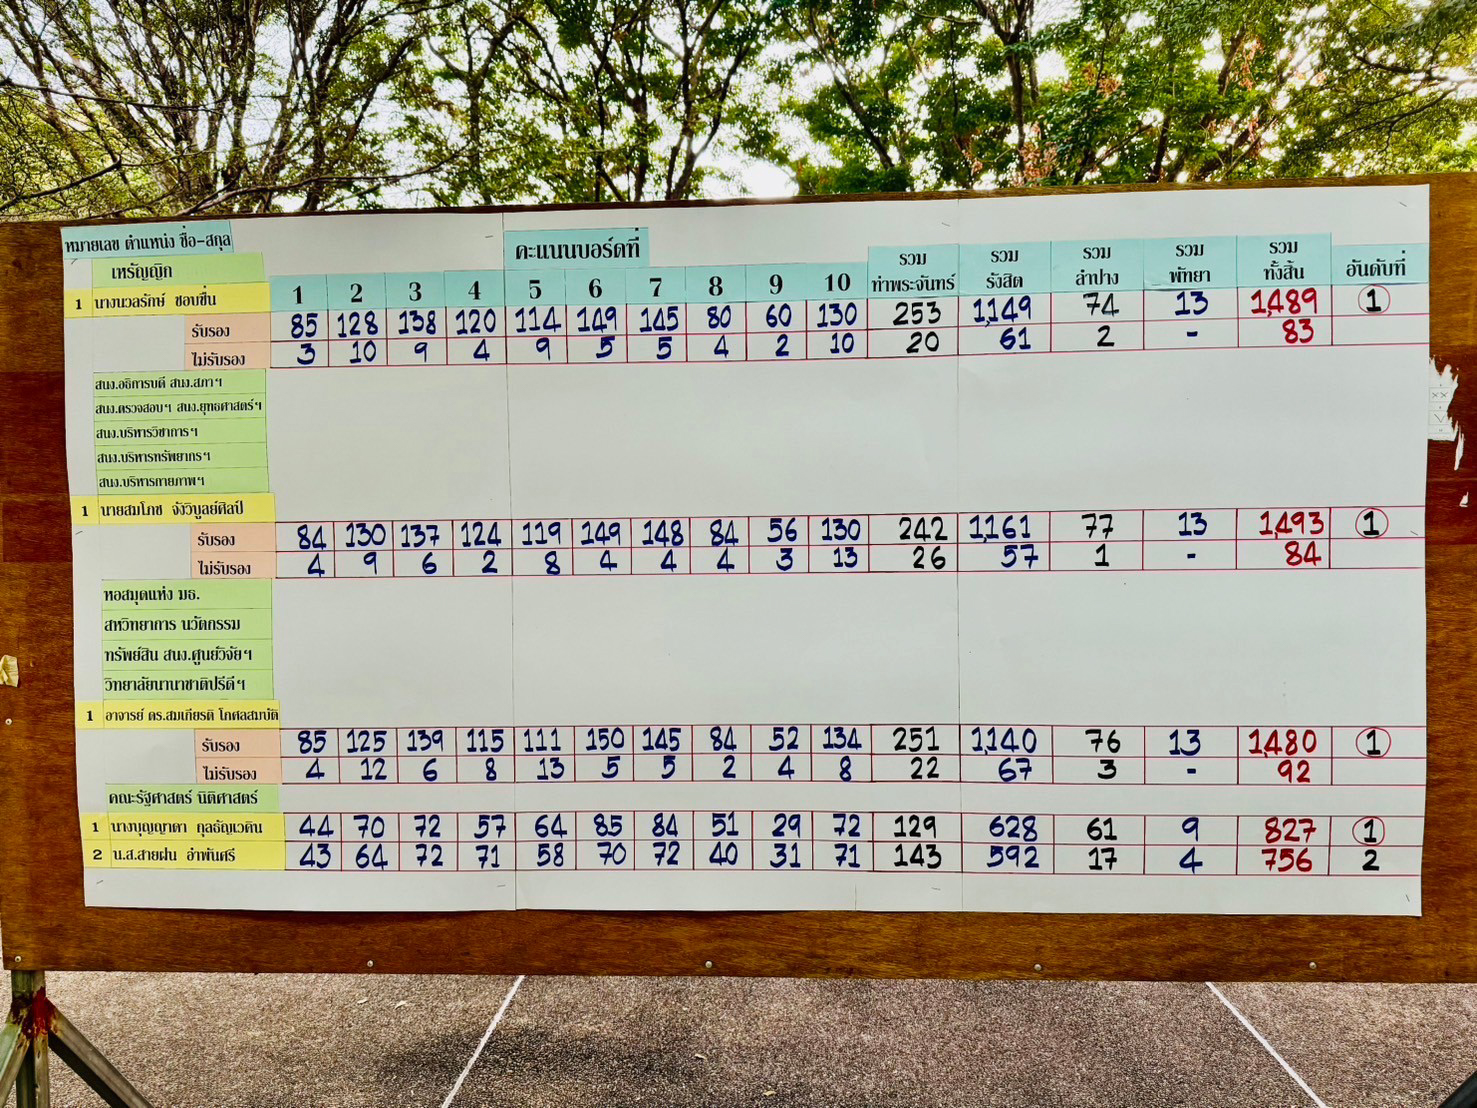 หมายเลข ตำแหน่ง ชื่อ-สกุล คะแนนบอร์ดที่ รวม ท่าพระจันทร์ รวม รังสิต รวม ลำปาง รวม พัทยา รวม ทั้งสิ้น อันดับที่
เหรัญญิก 1 2 3 4 5 6 7 8 9 10
1 นางนวลรักษ์ ชอบชื่น
รับรอง 85 128 138 120 114 149 145 80 60 130 253 1,149 74 13 1,489 1
ไม่รับรอง 3 10 9 4 9 5 5 4 2 10 20 61 2 - 83
สนง.อธิการบดี สนง.สภาฯ
สนง.ตรวจสอบฯ สนง.ยุทธศาสตร์ฯ
สนง.บริหารวิชาการฯ
สนง.บริหารทรัพยากรฯ
สนง.บริหารกายภาพฯ
1 นายสมโภช จังวิบูลย์ศิลป์
รับรอง 84 130 137 124 119 149 148 84 56 130 242 1,161 77 13 1,493 1
ไม่รับรอง 4 9 6 2 8 4 4 4 3 13 26 57 1 - 84
หอสมุดแห่ง มธ.
สหวิทยาการ นวัตกรรม
ทรัพย์สิน สนง.ศูนย์วิจัยฯ
วิทยาลัยนานาชาติปรีดีฯ
1 อาจารย์ ดร.สมเกียรติ โกศลสมบัติ
รับรอง 85 125 139 115 111 150 145 84 52 134 251 1,140 76 13 1,480 1
ไม่รับรอง 4 12 6 8 13 5 5 2 4 8 22 67 3 - 92
คณะรัฐศาสตร์ นิติศาสตร์
1 นางบุญญาดา กุลธัญเวคิน 44 70 72 57 64 85 84 51 29 72 129 628 61 9 827 1
2 น.ส.สายฝน อำพันศรี 43 64 72 71 58 70 72 40 31 71 143 592 17 4 756 2